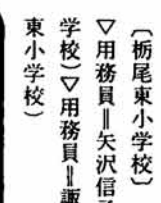 〔栃尾東小学校〕
▽用務員＝矢沢信
学校）▽用務員＝諏
東小学校）